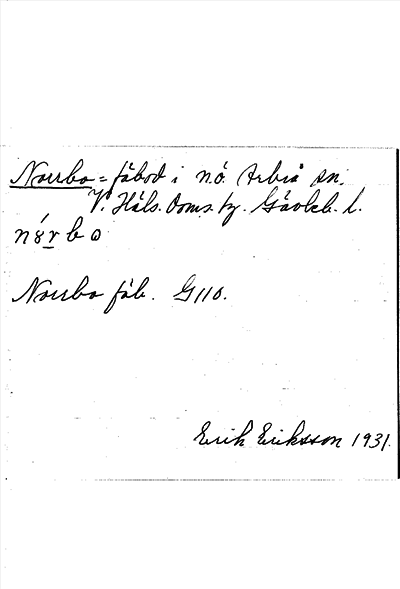 Norrbo = fäbod i n.ö. Arbrå sn.
V. Häls. doms. ty. Gävleb. l.
Norrbo fäb. G110.
Erik Eriksson 1931.